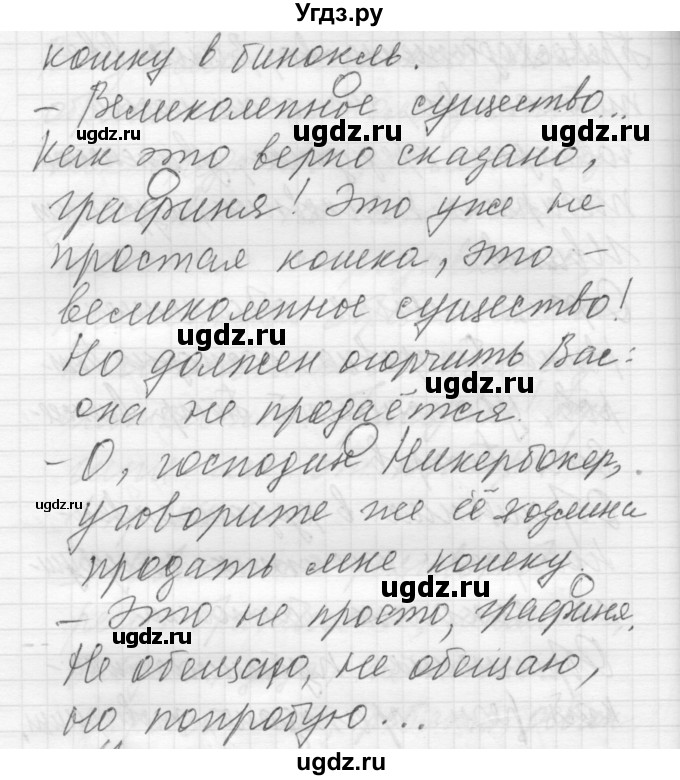 Угдз.ру
кошку в бинокль.
– Великолепное существо...
Как это верно сказано,
графиня! Это уже не
простая кошка, это –
великолепное существо!
Но должен огорчить Вас:
она не продаётся.
– О, господин Никербокер,
уговорите же её хозяина
продать мне кошку.
– Это не просто, графиня.
Не обещаю, не обещаю,
но попробую...
ugdz.ru
ugdz.ru
ugdz.ru
ugdz.ru
ugdz.ru
ugdz.ru
ugdz.ru
ugdz.ru
ugdz.ru
ugdz.ru